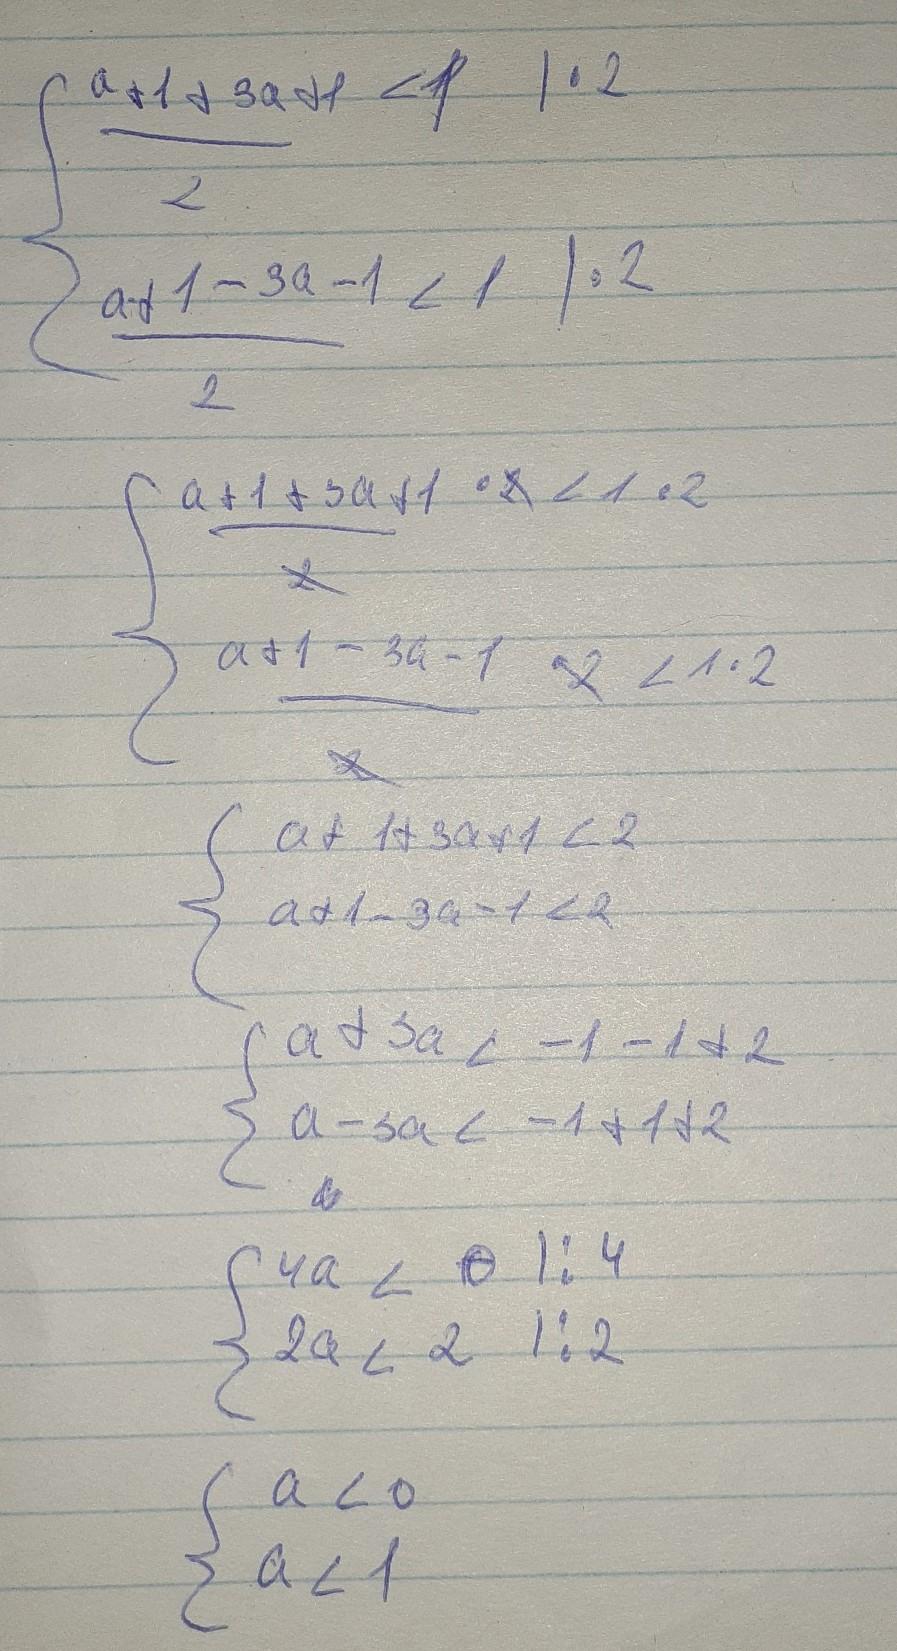 a+1+3a+1 < 1 |·2
2
a+1-3a-1 < 1 |·2
2
a+1+3a+1 ·2 < 1·2
2
a+1-3a-1 ·2 < 1·2
2
a+1+3a+1<2
a+1-3a-1<2
a+3a < -1-1+2
a-3a < -1+1+2
4a < 0 |:4
2a < 2 |:2
a<0
a<1